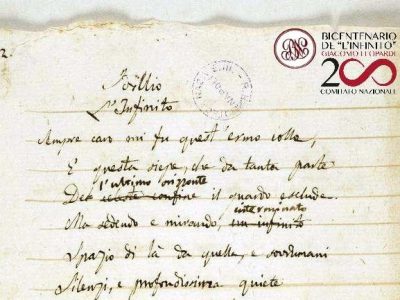 BICENTENARIO
DE "L'INFINITO"
GIACOMO LEOPARDI
200
COMITATO NAZIONALE
2.
Idillio
L'Infinito
Sempre caro mi fu quest'ermo colle,
E questa siepe, che da tanta parte
l'ultimo orizzonte
Del celeste confine il guardo esclude.
interminato
Ma sedendo e mirando, un infinito
Spazio di là da quella, e sovrumani
Silenzi, e profondissima quiete